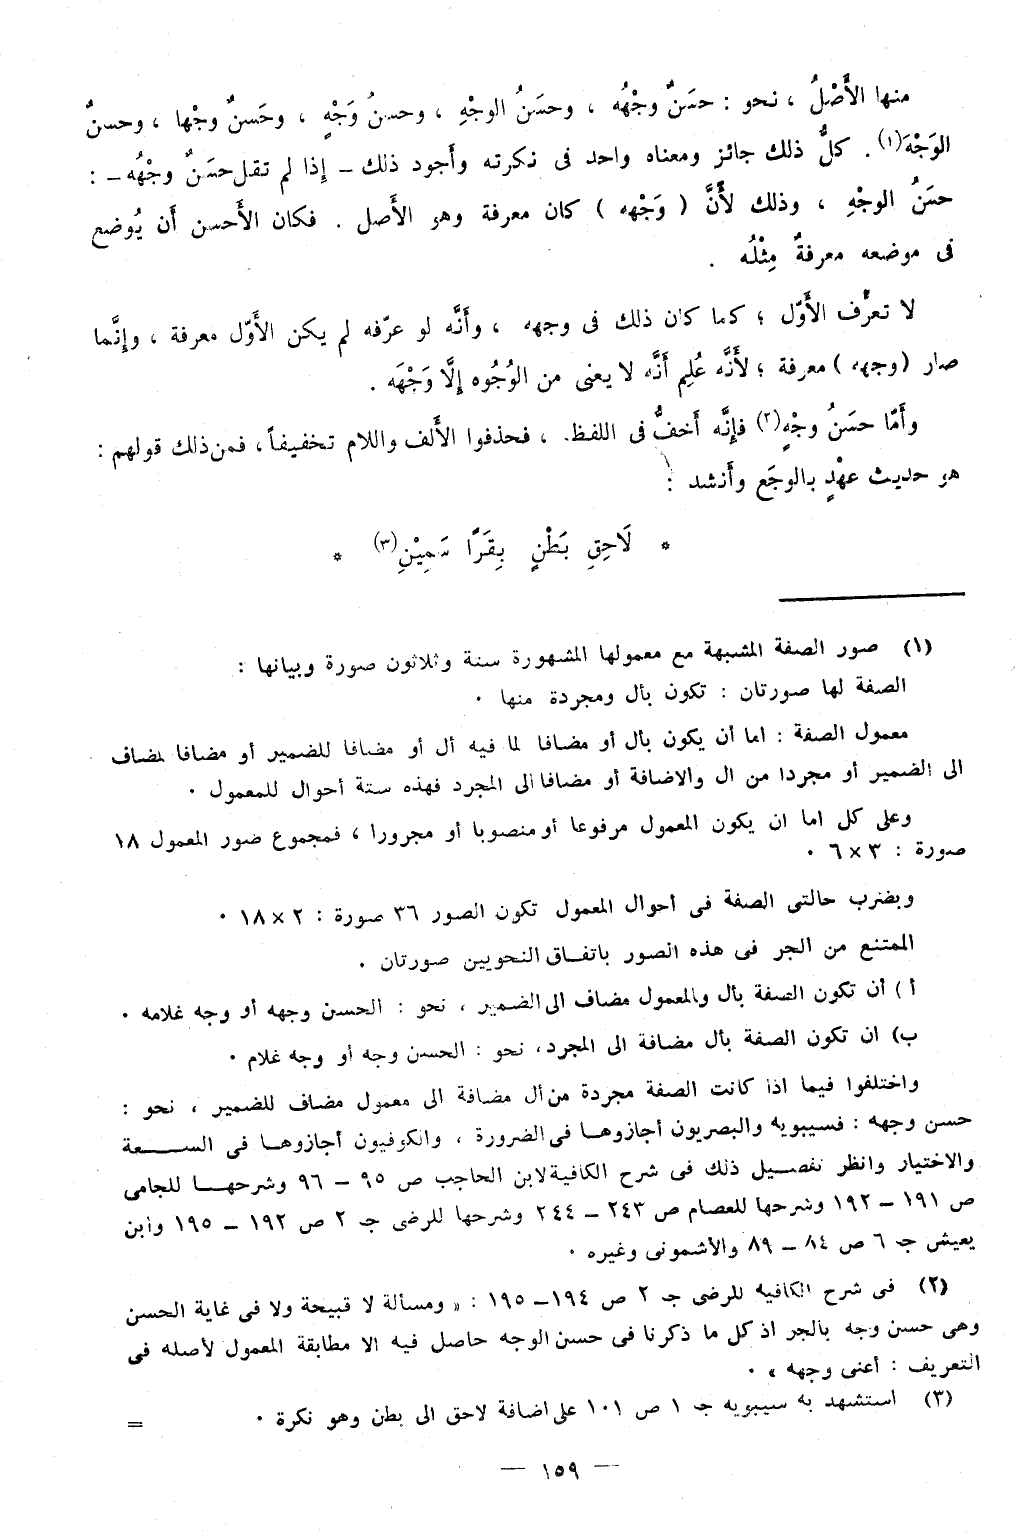 منها الأَصْلُ ، نحو : حسَنٌ وجْهُه ، وحسَنُ الوجْهِ ، وحسنُ وَجْهٍ ، وحَسنٌ وجْها ، وحسنٌ
الوَجْهَ(١) . كلُّ ذلك جائز ومعناه واحد فى نكرته وأَجود ذلك – إِذا لم تقل حسَنٌ وجْهُه – :
حسَنُ الوجْهِ ، وذلك لأَنَّ ( وَجْهه ) كان معرفة وهو الأَصل . فكان الأَحسن أَن يُوضع
فى موضعه معرفةٌ مِثْلُه .
لا تعرِّف الأَوّل ؛ كما كان ذلك فى وجهه ، وأَنَّه لو عرّفه لم يكن الأَوّل معرفة ، وإِنَّما
صار (وجهه ) معرفة ؛ لأَنَّه عُلِم أَنَّه لا يعنى من الوُجُوه إِلَّا وَجْهَه .
وأَمّا حسَنُ وجْهٍ(٢) فإِنَّه أَخفُّ فى اللفظ. ، فحذفوا الأَلف واللام تخفيفاً ، فمن ذلك قولهم :
هو حديث عهْدٍ بالوجَع وأَنشد :
* لَاحِقِ بَطْنٍ بِقَرًا سَمِيْنِ(٣) *
(١) صور الصفة المشبهة مع معمولها المشهورة ستة وثلاثون صورة وبيانها :
الصفة لها صورتان : تكون بأل ومجردة منها ٠
معمول الصفة : اما أن يكون بأل أو مضافا لما فيه أل أو مضافا للضمير أو مضافا لمضاف
الى الضمير أو مجردا من ال والاضافة أو مضافا الى المجرد فهذه ستة أحوال للمعمول ٠
وعلى كل اما ان يكون المعمول مرفوعا أو منصوبا أو مجرورا ، فمجموع صور المعمول ١٨
صورة : ٣ × ٦ ٠
وبضرب حالتى الصفة فى أحوال المعمول تكون الصور ٣٦ صورة : ٢ × ١٨ ٠
الممتنع من الجر فى هذه الصور باتفاق النحويين صورتان .
أ ) أن تكون الصفة بأل والمعمول مضاف الى الضمير ، نحو : الحسن وجهه أو وجه غلامه ٠
ب) ان تكون الصفة بأل مضافة الى المجرد، نحو : الحسن وجه أو وجه غلام ٠
واختلفوا فيما اذا كانت الصفة مجردة من أل مضافة الى معمول مضاف للضمير ، نحو :
حسن وجهه : فسيبويه والبصريون أجازوها فى الضرورة ، والكوفيون أجازوها فى السعة
والاختيار وانظر تفصيل ذلك فى شرح الكافية لابن الحاجب ص ٩٥ – ٩٦ وشرحها للجامى
ص ١٩١ – ١٩٢ وشرحها للعصام ص ٢٤٣ – ٢٤٤ وشرحها للرضى جـ ٢ ص ١٩٢ – ١٩٥ وابن
يعيش جـ ٦ ص ٨٤ – ٨٩ والأشمونى وغيره ٠
(٢) فى شرح الكافيه للرضى جـ ٢ ص ١٩٤ – ١٩٥ : « ومسألة لا قبيحة ولا فى غاية الحسن
وهى حسن وجه بالجر اذ كل ما ذكرنا فى حسن الوجه حاصل فيه الا مطابقة المعمول لأصله فى
التعريف : أعنى وجهه » ٠
(٣) استشهد به سيبويه جـ ١ ص ١٠١ على اضافة لاحق الى بطن وهو نكرة ٠ =
— ١٥٩ —